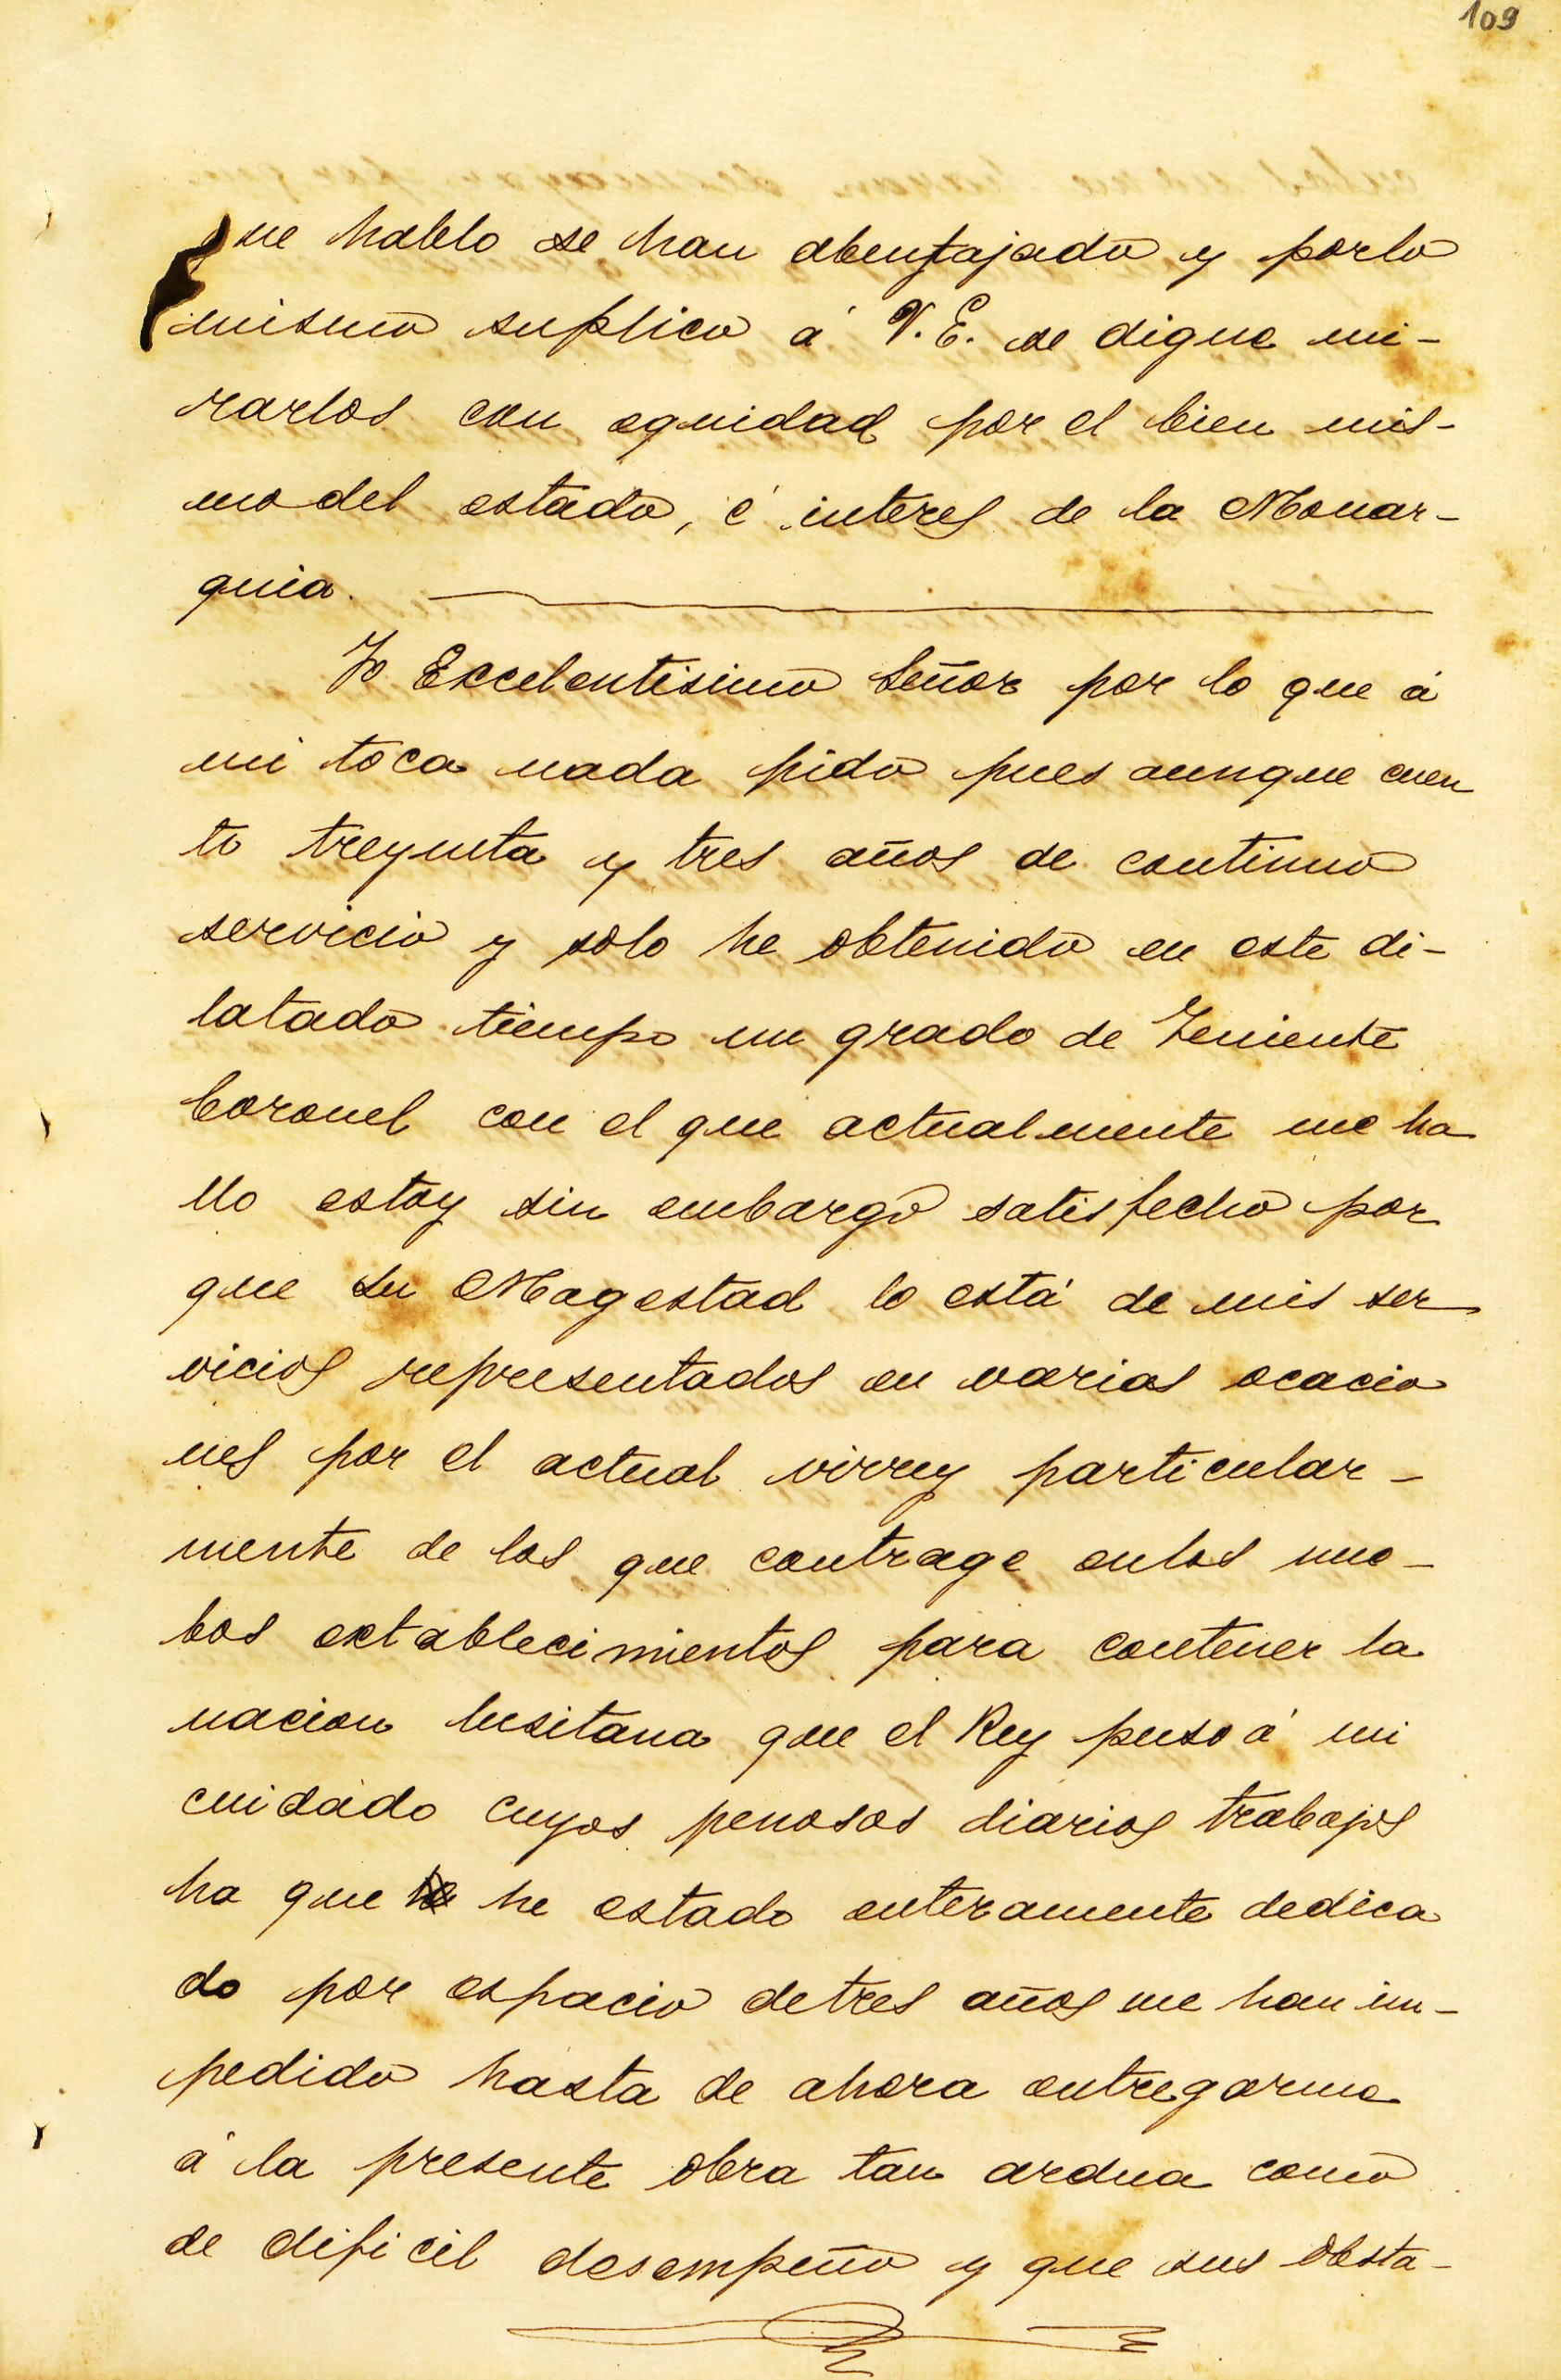 109
que hablo se han abentajado y porlo
mismo suplico á V. E. se digne mi-
rarlos con equidad por el bien mis-
mo del estado, é interes de la Monar-
quia.
Yo Excelentisimo Señor por lo que á
mi toca nada pido pues aunque cuen
to treynta y tres años de continuo
servicio y solo he obtenido en este di-
latado tiempo un grado de Teniente
Coronel con el que actualmente me ha
llo estoy sin embargo satisfecho por
que Su Magestad lo está de mis ser
vicios representados en varias ocacio
nes por el actual virrey particular-
mente de los que contrage enlos nue-
bos establecimientos para contener la
nacion lusitana que el Rey puso á mi
cuidado cuyos penosos diarios trabajos
ha que he estado enteramente dedica
do por espacio detres años me han im-
pedido hasta de ahora entregarme
á la presente obra tan ardua como
de dificil desempeño y que sus obsta-